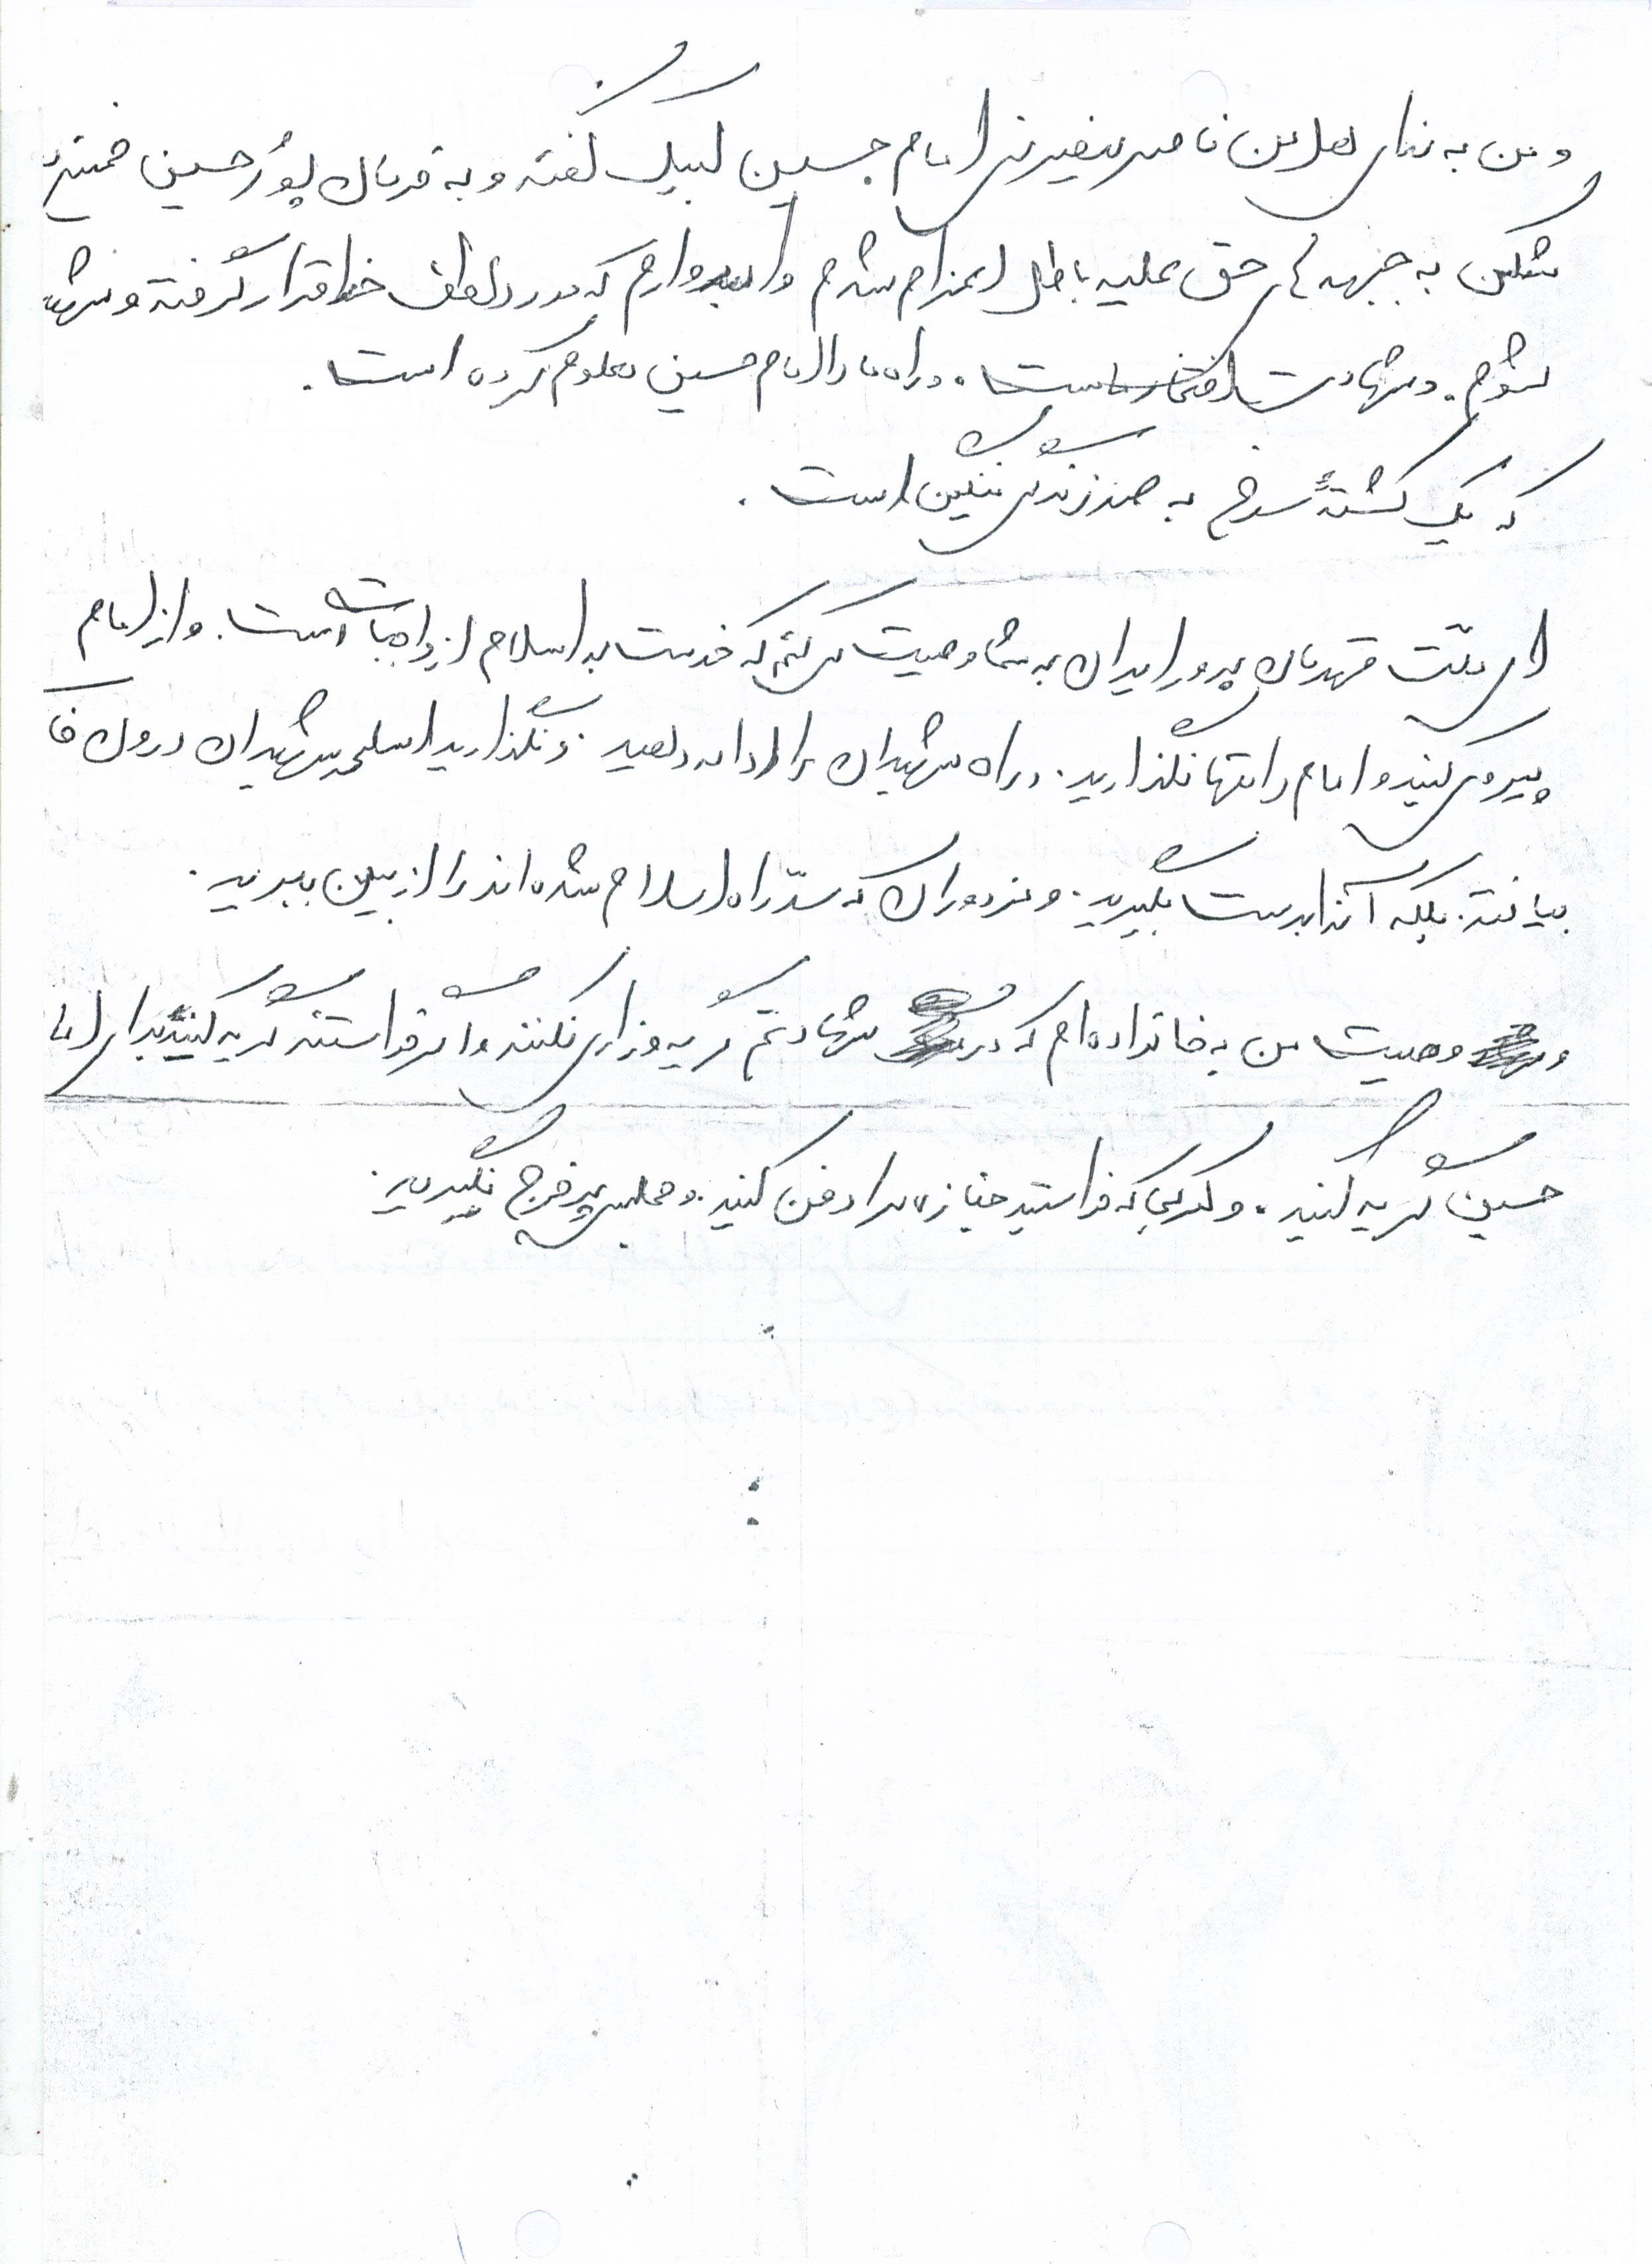 و من به ندای هل من ناصر ینصرنی امام حسین لبیک گفته و به فرمان پور حسین خمینی
شکن به جبهه های حق علیه باطل اعزام شدم و امیدوارم که مورد لطف خدا قرار گرفته و شهید
شوم. و شهادت افتخار ماست. و راه ما را امام حسین معلوم کرده است.
که یک کشتهٔ سرخ به صد زندگی ننگین است.
ای ملّت قهرمان پرور ایران به شما وصیت می کنم که خدمت به اسلام از واجبات است. و از امام
پیروی کنید و امام را تنها نگذارید. و راه شهیدان را ادامه دهید. و نگذارید اسلحه شهیدان در ون خا
بیافتد. بلکه آنرا بدست بگیرید. و مزدوران که سدّ راه اسلام شده اند را از بین ببرید.
و وصیت من به خانواده ام که در شهادتم گریه وزاری نکنند و اگر خواستند گریه کنند برای اما
حسین گریه کنید. و که خواستید جنازه مرا دفن کنید. و مجلس پر خرج نگیرید.